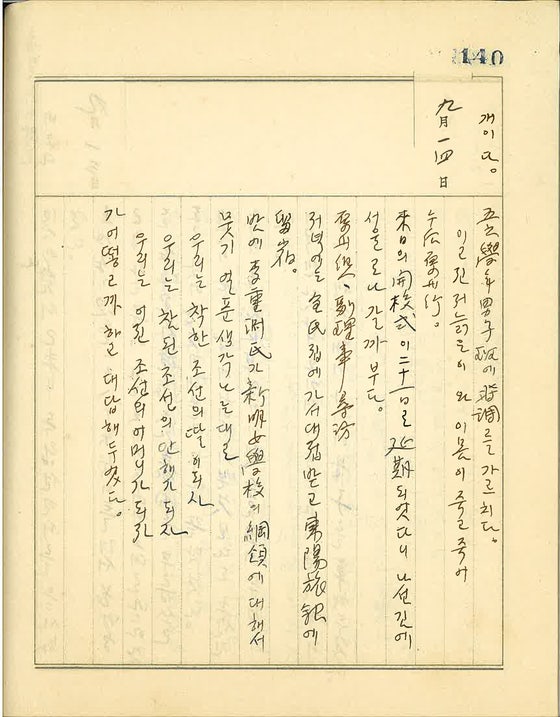 140
개이다。 五六學年男子班에 時調를 가르치다。
이고 진 저 늙은이 와 이 몸이 죽고 죽어
九月一四日 午后 行。
來日의 開校式이 二十一日로 延期되엿다니 나선 길에
서울로나 갈까부다。
副理事尋訪
저녁에는 金氏집에 가서 대접받고 東陽旅館에
留宿。
밤에 李重 氏가 新明女學校의 綱領에 대해서
뭇기 얼푼 생각나는대로
우리는 착한 조선의 딸이 되자
우리는 참된 조선의 안해가 되자
우리는 어진 조선의 어머니가 되자
가 어떻고까 하고 대답해 두엇다。